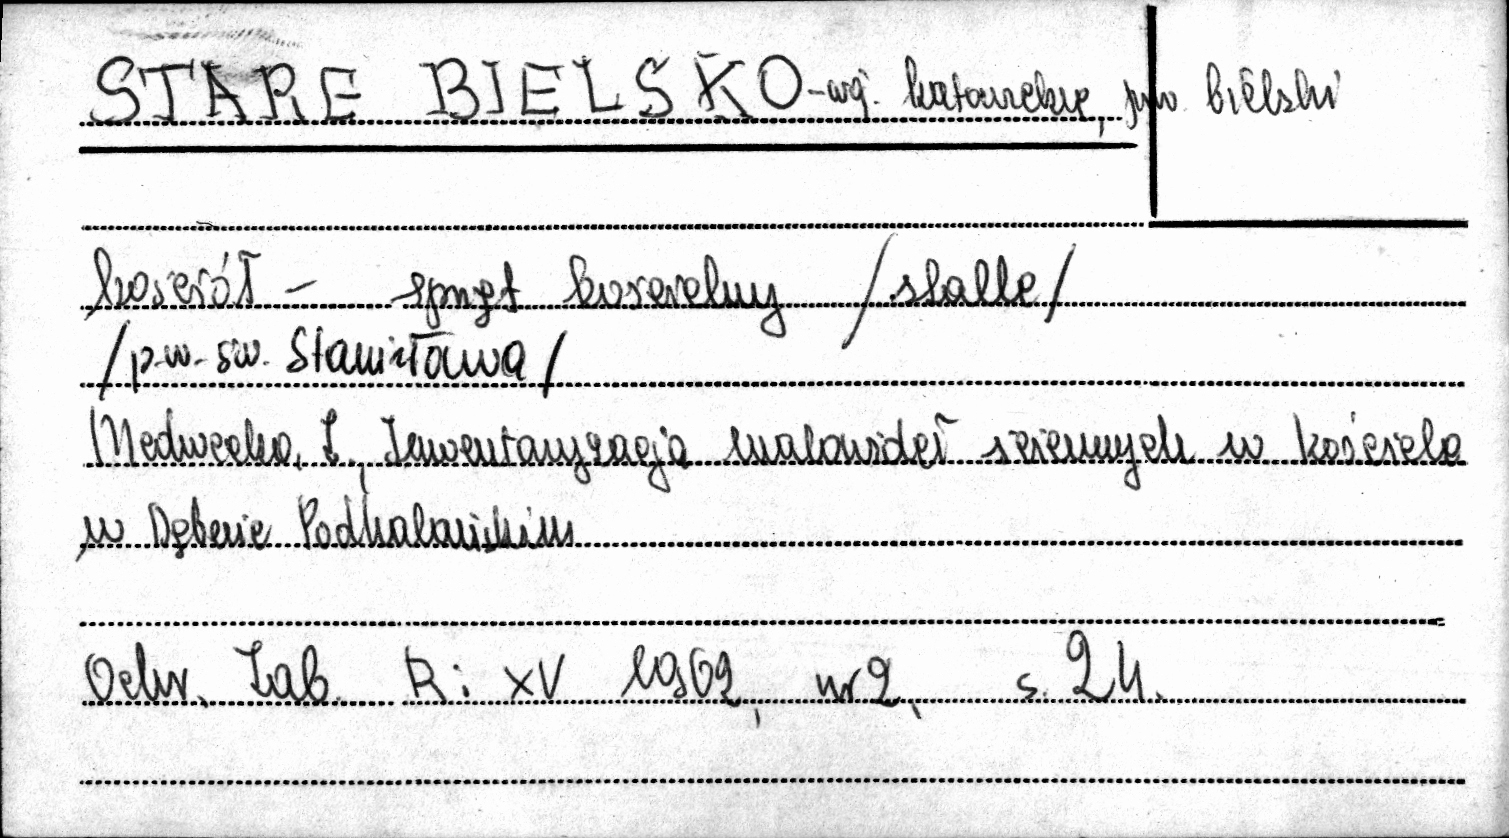 STARE BIELSKO - woj. katowickie, pow. bielski
kościół - sprzęt kościelny /stalle/
/p.w. św. Stanisława/
Medwecka, Z., Inwentaryzacja malowideł ściennych w kościele
w Dębnie Podhalańskim
Ochr. Zab. R: XV 1962, nr 2, s. 24.